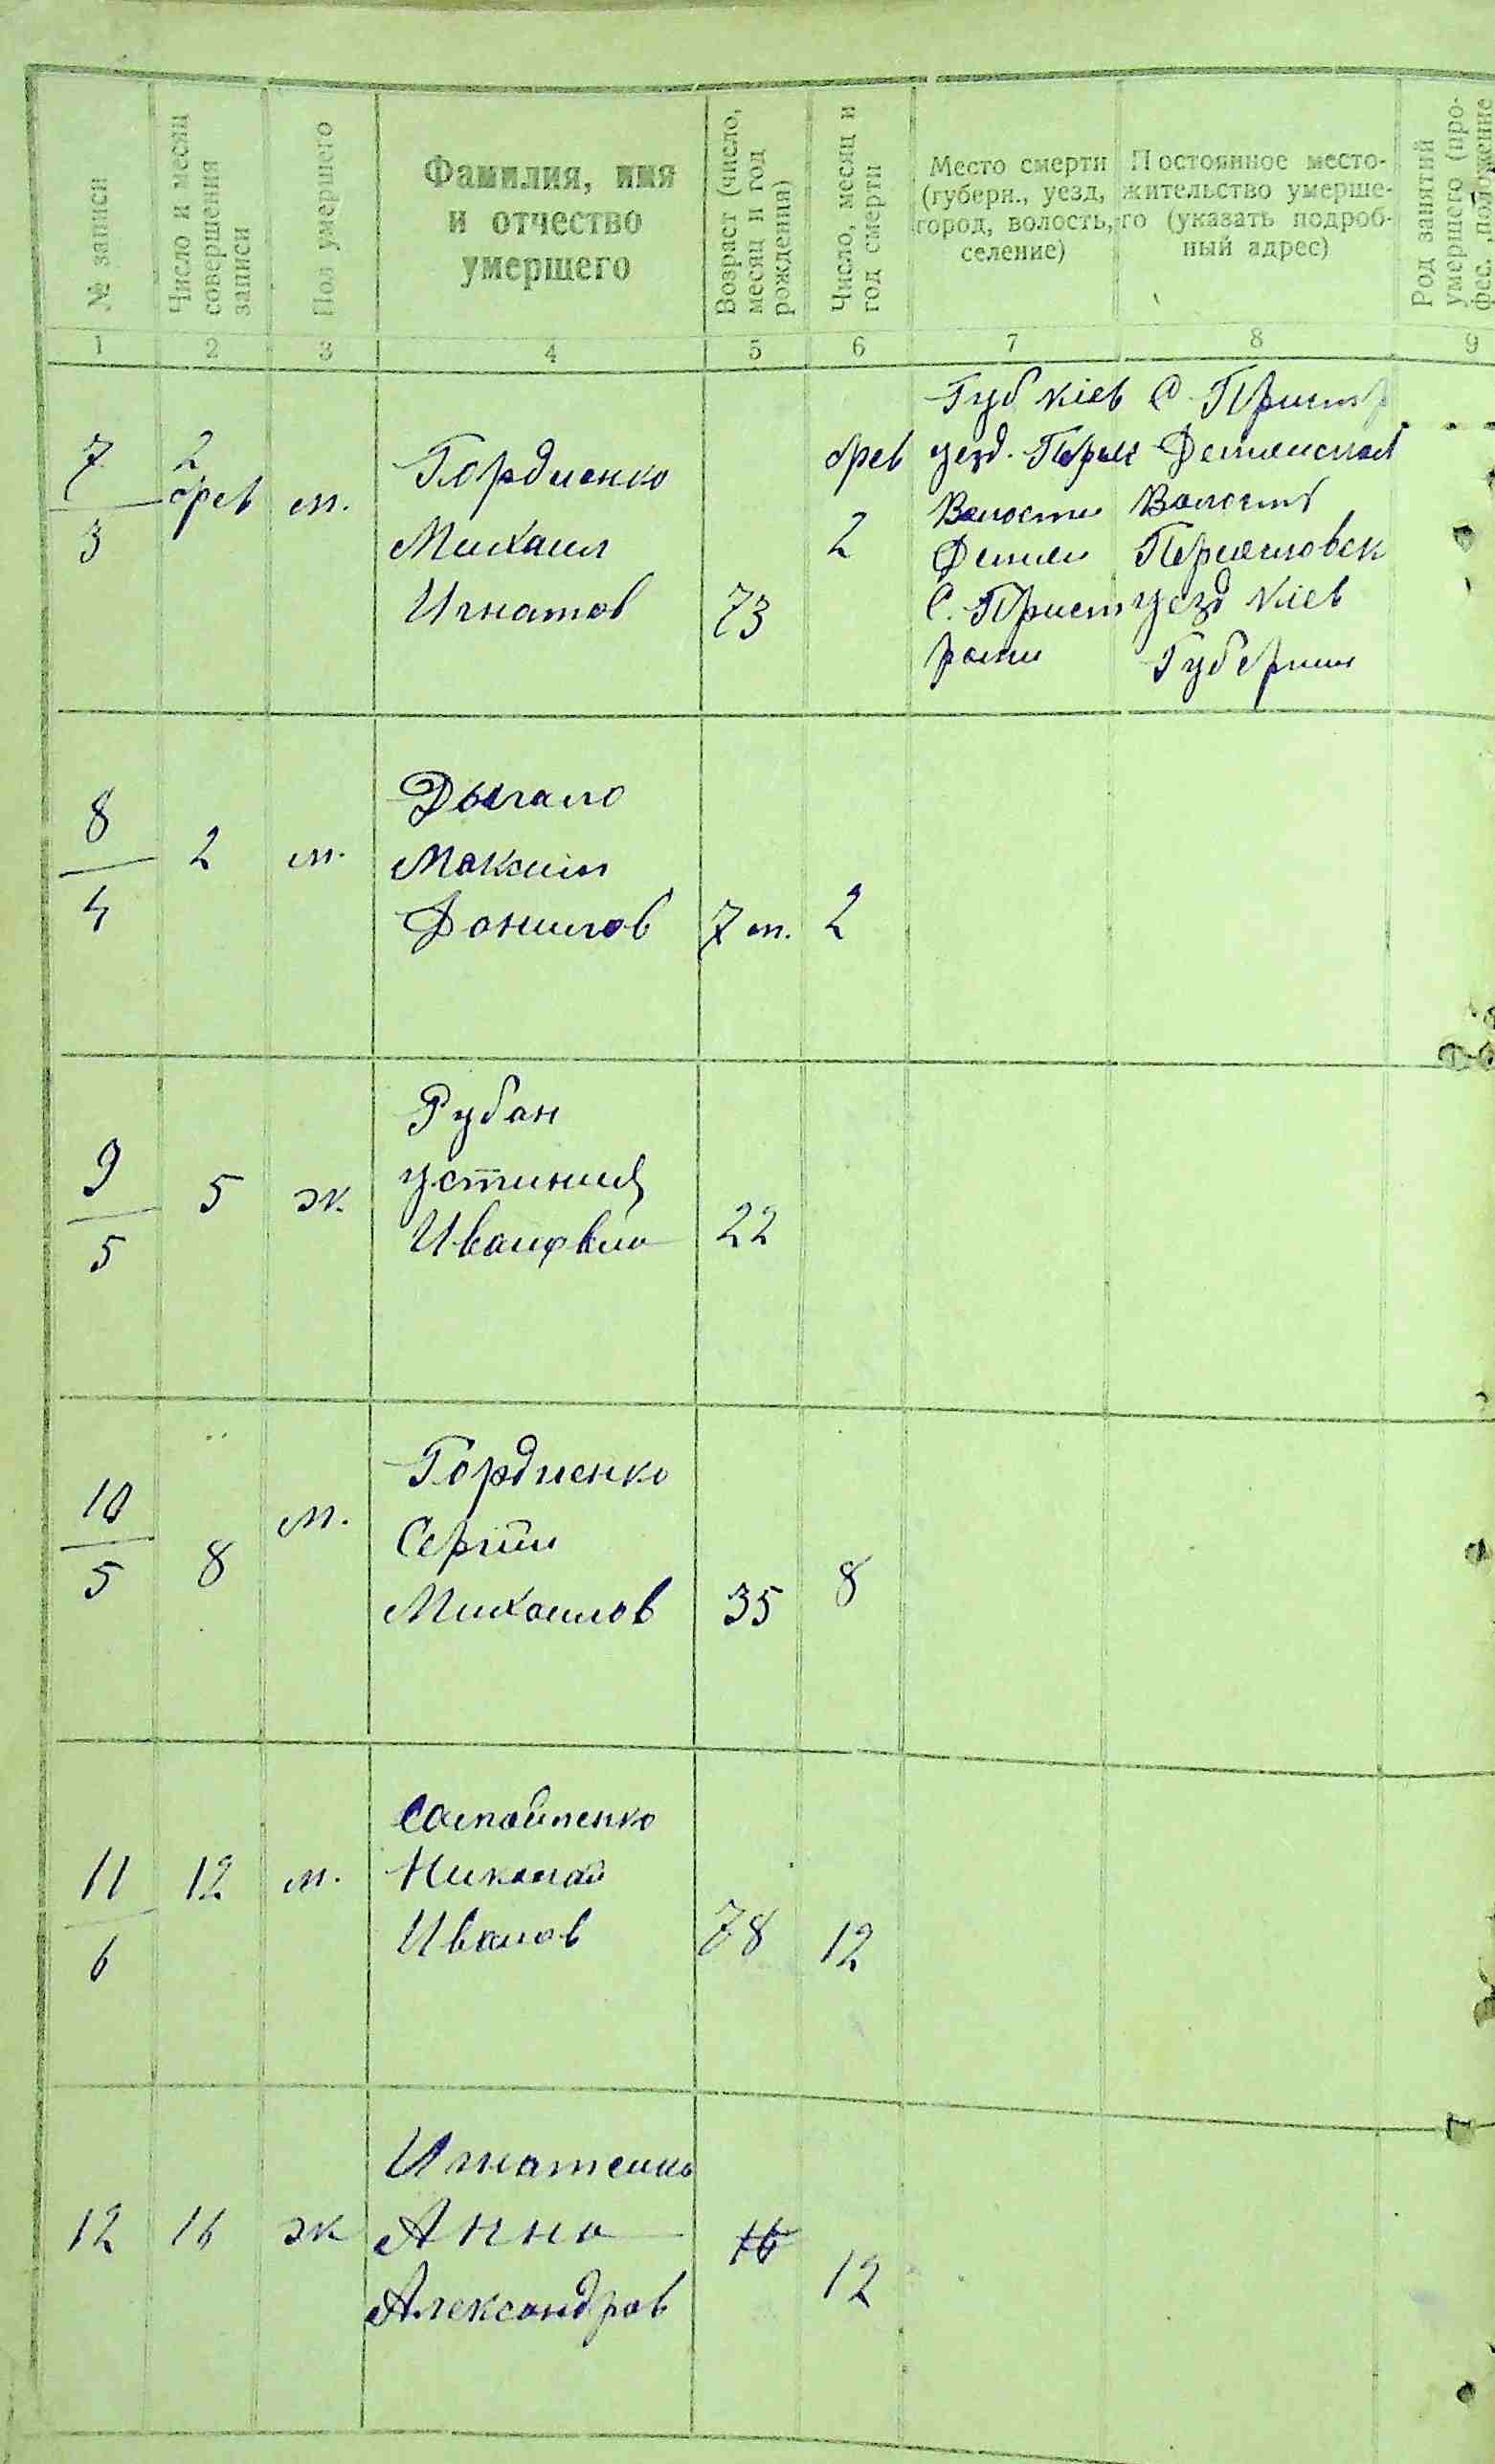 № записи
Число и месяц
совершения
записи
Пол умершего
Фамилия, имя
и отчество
умершего
Возраст (число,
месяц и год
рождения)
Число, месяц и
год смерти
Место смерти
(губерн., уезд,
город, волость,
селение)
Постоянное место-
жительство умерше-
го (указать подроб-
ный адрес)
Род занятий
умершего (про-
фес., положение
1 2 3 4 5 6 7 8 9
7
3
2
фев
м.
Гордиенко
Михаил
Игнатов
73
фев
2
Губ Кіев
уезд.
Волости
Демян
С. Прист
роми
С.
Волости
уезд Кіев
Губернии
8
4
2
м.
Дыгало
Максим
Данилов
7 м.
2
9
5
5
ж
Рубан
Устиния
Ивановна
22
10
5
8
м.
Гордиенко
Сергий
Михаилов
35
8
11
6
12
м.
Самойленко
Николай
Иванов
78
12
12
16
ж
Игнатенко
Анна
Александров
16
12